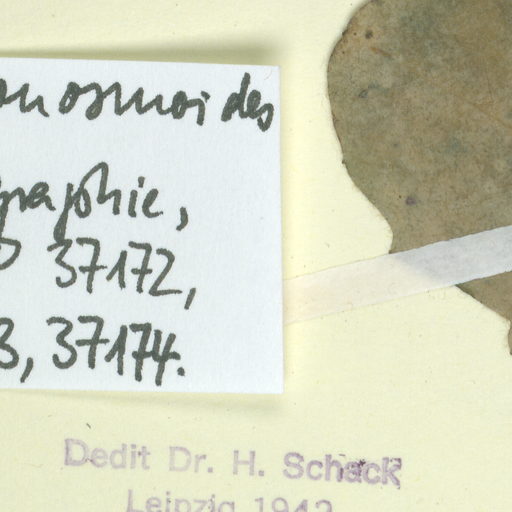 osmoides
graphie,
37172,
3, 37174.
Dedit Dr. H. Schack
Leipzig 1942